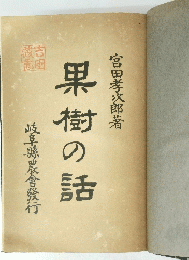 宮田孝次郎著
果樹の話
岐阜縣農會發行